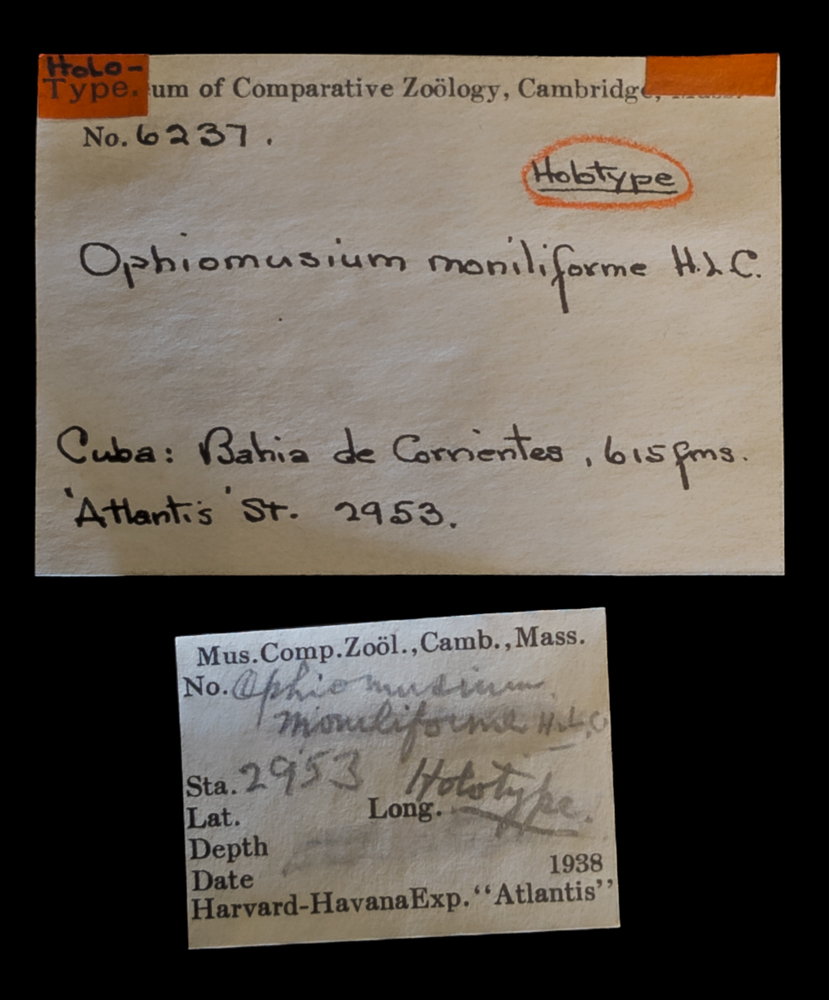 Holo-
Type. um of Comparative Zoölogy, Cambridge, Mass.
No. 6237.
Holotype
Ophiomusium moniliforme H.L.C.
Cuba: Bahia de Corrientes, 615 fms.
'Atlantis' St. 2953.
Mus.Comp.Zoöl.,Camb.,Mass.
No. Ophiomusium
moniliforme H.L.C
Sta. 2953 Holotype.
Lat. Long.
Depth
Date 1938
Harvard-HavanaExp. "Atlantis"